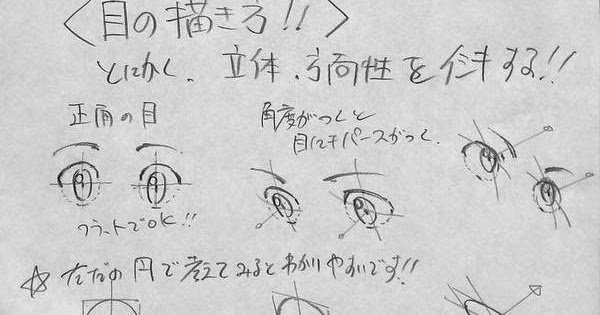 〈目の描き方!!〉
とにかく、立体、方向性を イシキする!!
正面の目
角度がつくと
目にもパースがつく。
フラットでOK!!
☆ ただの円で考えてみるとわかりやすいです!!